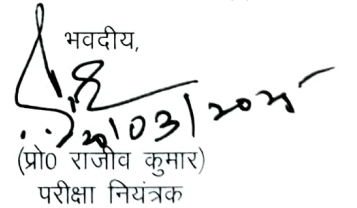 भवदीय,
20/03/2025
(प्रो0 राजीव कुमार)
परीक्षा नियंत्रक